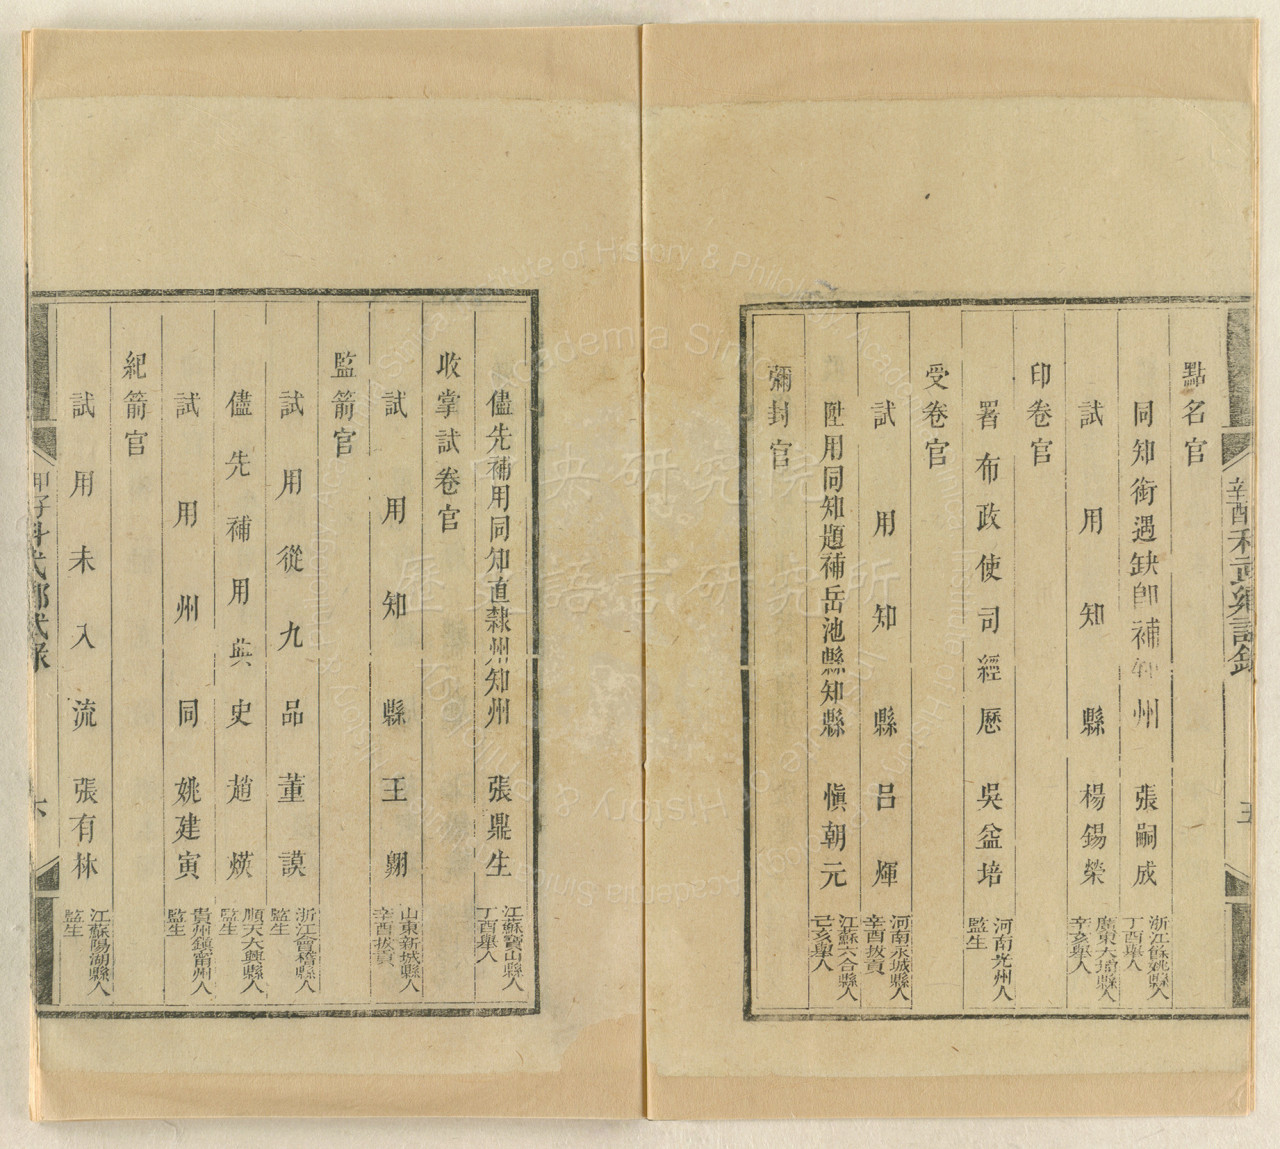 辛酉科武鄉試錄
五
點名官
同知銜遇缺即補知州 張嗣成 浙江餘姚縣人丁酉舉人
試用知縣 楊錫榮 廣東大埔縣人辛亥舉人
印卷官
署布政使司經歷 吳益培 河南光州人監生
受卷官
試用知縣 呂煇 河南永城縣人辛酉拔貢
陞用同知題補岳池縣知縣 愼朝元 江蘇六合縣人己亥舉人
彌封官
儘先補用同知直隸州知州 張鼎生 江蘇寶山縣人丁酉舉人
收掌試卷官
試用知縣 王翽 山東新城縣人辛酉拔貢
監箭官
試用從九品 董謨 浙江會稽縣人監生
儘先補用典史 趙煐 順天大興縣人監生
試用州同 姚建寅 貴州鎮甯州人監生
紀箭官
試用未入流 張有林 江蘇陽湖縣人監生
甲子科武鄉試錄
六